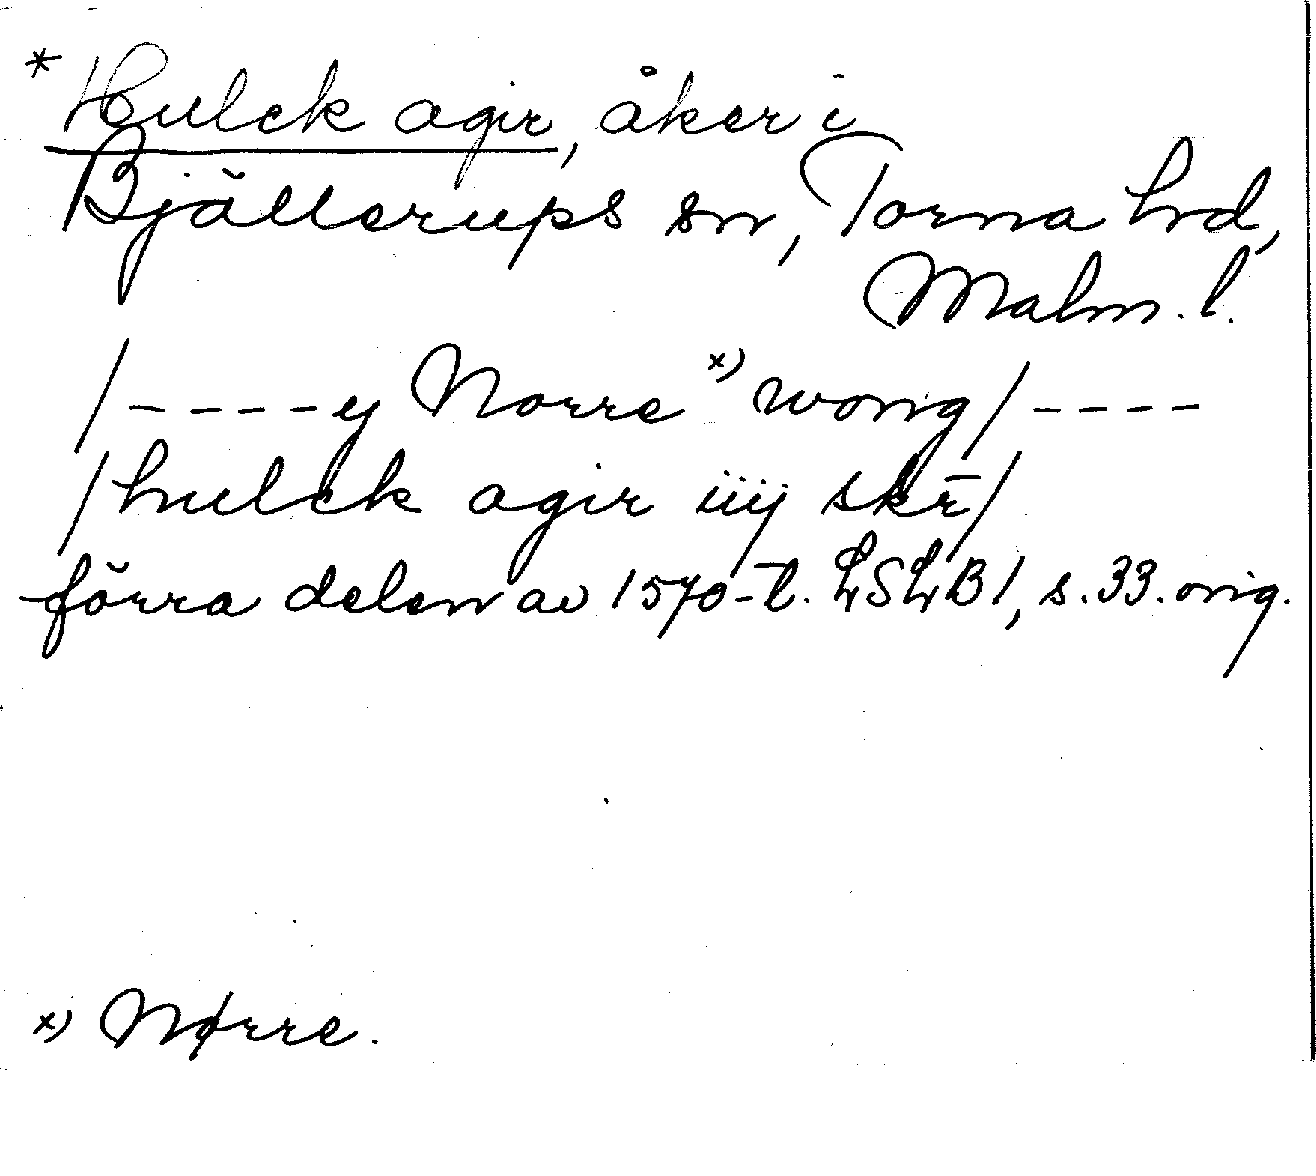 * Hulck agir, åker i
Bjällerups sn, Torna hd,
Malm. l.
/ - - - - y Norre x) wong / - - - -
/ hulck agir iiij skr̄ /
förra delen av 1570-t. LSLB1, s. 33. orig.
x) Nørre.